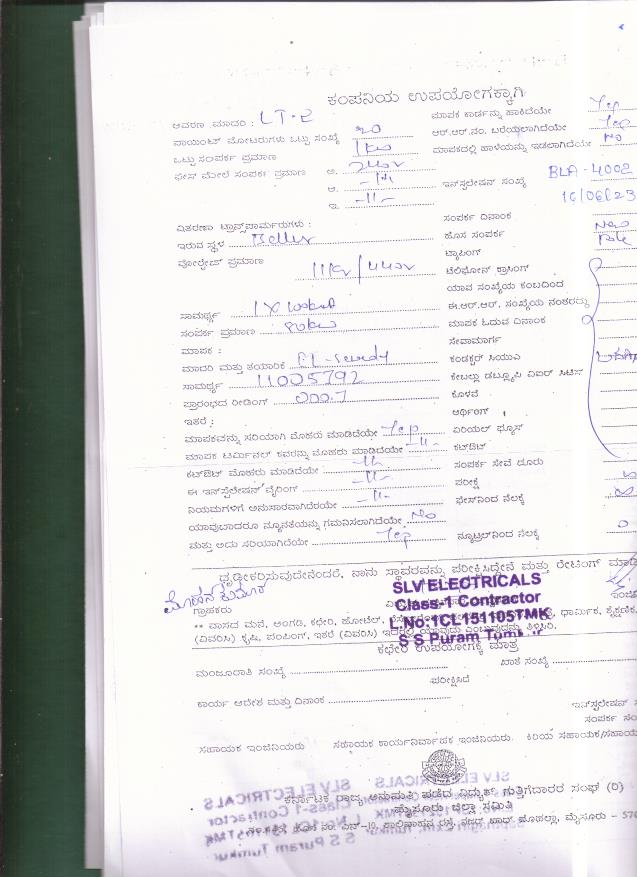 ಕಂಪನಿಯ ಉಪಯೋಗಕ್ಕಾಗಿ
ಆವರಣ ಮಾದರಿ : LT-2
ಮಾಪಕ ಕಾರ್ಡನ್ನು ಹಾಕಿದೆಯೇ Yes
ಪಾಯಿಂಟ್ ಮೋಟರುಗಳು ಒಟ್ಟು ಸಂಖ್ಯೆ 20
ಆರ್.ಆರ್.ನಂ. ಬರೆಯಲಾಗಿದೆಯೇ Yes
ಒಟ್ಟು ಸಂಪರ್ಕ ಪ್ರಮಾಣ 1kw
ಮಾಪಕದಲ್ಲಿ ಹಾಳೆಯನ್ನು ಇಡಲಾಗಿದೆಯೇ No
ಫೇಸ್ ಮೇಲೆ ಸಂಪರ್ಕ ಪ್ರಮಾಣ ಅ. 240v
ಆ. -11-
ಇನ್‌ಸ್ಟಲೇಷನ್ ಸಂಖ್ಯೆ BLA-4002
ಇ. -11-
16/06/23
ವಿತರಣಾ ಟ್ರಾನ್ಸ್‌ಫಾರ್ಮರುಗಳು :
ಸಂಪರ್ಕ ದಿನಾಂಕ
ಇರುವ ಸ್ಥಳ
ಹೊಸ ಸಂಪರ್ಕ New
ಟ್ಯಾಪಿಂಗ್ Pole
ವೋಲ್ಟೇಜ್ ಪ್ರಮಾಣ 11kv/440v
ಟೆಲಿಫೋನ್ ಕ್ರಾಸಿಂಗ್
ಯಾವ ಸಂಖ್ಯೆಯ ಕಂಬದಿಂದ
ಸಾಮರ್ಥ್ಯ
ಈ.ಆರ್.ಆರ್. ಸಂಖ್ಯೆಯ ನಂತರದ್ದು
ಸಂಪರ್ಕ ಪ್ರಮಾಣ 80kw
ಮಾಪಕ ಓದುವ ದಿನಾಂಕ
ಮಾಪಕ :
ಸೇವಾಮಾರ್ಗ
ಮಾದರಿ ಮತ್ತು ತಯಾರಿಕೆ
ಕಂಡಕ್ಟರ್ ಸಿಯುಎ
ಸಾಮರ್ಥ್ಯ 11005792
ಕೇಬಲ್ಲು ಡಬ್ಲ್ಯೂಪಿ ವಿಐಆರ್ ಸಿಟಿಸಿ
ಪ್ರಾರಂಭದ ರೀಡಿಂಗ್ 000.7
ಕೊಳವೆ
ಇತರೆ :
ಆರ್ಥಿಂಗ್
ಮಾಪಕವನ್ನು ಸರಿಯಾಗಿ ಮೊಹರು ಮಾಡಿದೆಯೇ Yes
ಏರಿಯಲ್ ಫ್ಯೂಸ್
ಮಾಪಕ ಟರ್ಮಿನಲ್ ಕವರನ್ನು ಮೊಹರು ಮಾಡಿದೆಯೇ -11-
ಕಟ್‌ಔಟ್
ಕಟ್‌ಔಟ್ ಮೊಹರು ಮಾಡಿದೆಯೇ -11-
ಸಂಪರ್ಕ ಸೇವೆ ದೂರು
ಈ ಇನ್‌ಸ್ಟಲೇಷನ್ ವೈರಿಂಗ್ -11-
ಪರೀಕ್ಷೆ
ನಿಯಮಗಳಿಗೆ ಅನುಸಾರವಾಗಿದೆಯೇ -11-
ಫೇಸ್‌ನಿಂದ ನೆಲಕ್ಕೆ
ಯಾವುದಾದರೂ ನ್ಯೂನತೆಯನ್ನು ಗಮನಿಸಲಾಗಿದೆಯೇ No
ಮತ್ತು ಅದು ಸರಿಯಾಗಿದೆಯೇ Yes
ನ್ಯೂಟ್ರಲ್‌ನಿಂದ ನೆಲಕ್ಕೆ
ಧೃಢೀಕರಿಸುವುದೇನೆಂದರೆ, ನಾನು ಸ್ಥಾವರವನ್ನು ಪರೀಕ್ಷಿಸಿದ್ದೇನೆ ಮತ್ತು ರೇಟಿಂಗ್ ಮಾಡಿ
ಮೋಹನ ಕುಮಾರ್
ಗ್ರಾಹಕರು
SLV ELECTRICALS
Class-1 Contractor
L.No:1CL151105TMK
S S Puram Tumkur
** ವಾಸದ ಮನೆ, ಅಂಗಡಿ, ಕಛೇರಿ, ಹೋಟೆಲ್, ಧಾರ್ಮಿಕ, ಶೈಕ್ಷಣಿಕ,
(ವಿವರಿಸಿ) ಕೃಷಿ, ಪಂಪಿಂಗ್, ಇತರೆ (ವಿವರಿಸಿ) ಇದರಲ್ಲಿ ಯಾವುದು ಎಂಬುವುದನ್ನು ತಿಳಿಸಿ.
ಕಛೇರಿ ಉಪಯೋಗಕ್ಕೆ ಮಾತ್ರ
ಮಂಜೂರಾತಿ ಸಂಖ್ಯೆ
ಖಾತೆ ಸಂಖ್ಯೆ
ಪರೀಕ್ಷಿಸಿದೆ
ಕಾರ್ಯ ಆದೇಶ ಮತ್ತು ದಿನಾಂಕ
ಇನ್‌ಸ್ಟಲೇಷನ್
ಸಂಪರ್ಕ
ಸಹಾಯಕ ಇಂಜಿನಿಯರು ಸಹಾಯಕ ಕಾರ್ಯನಿರ್ವಾಹಕ ಇಂಜಿನಿಯರು. ಕಿರಿಯ ಸಹಾಯಕ/ಸಹಾಯ
ಕರ್ನಾಟಕ ರಾಜ್ಯ ಅನುಮತಿ ಪಡೆದ ವಿದ್ಯುತ್ ಗುತ್ತಿಗೆದಾರರ ಸಂಘ (ರಿ)
ಮೈಸೂರು ಜಿಲ್ಲಾ ಸಮಿತಿ
ಮೈಸೂರು - 570